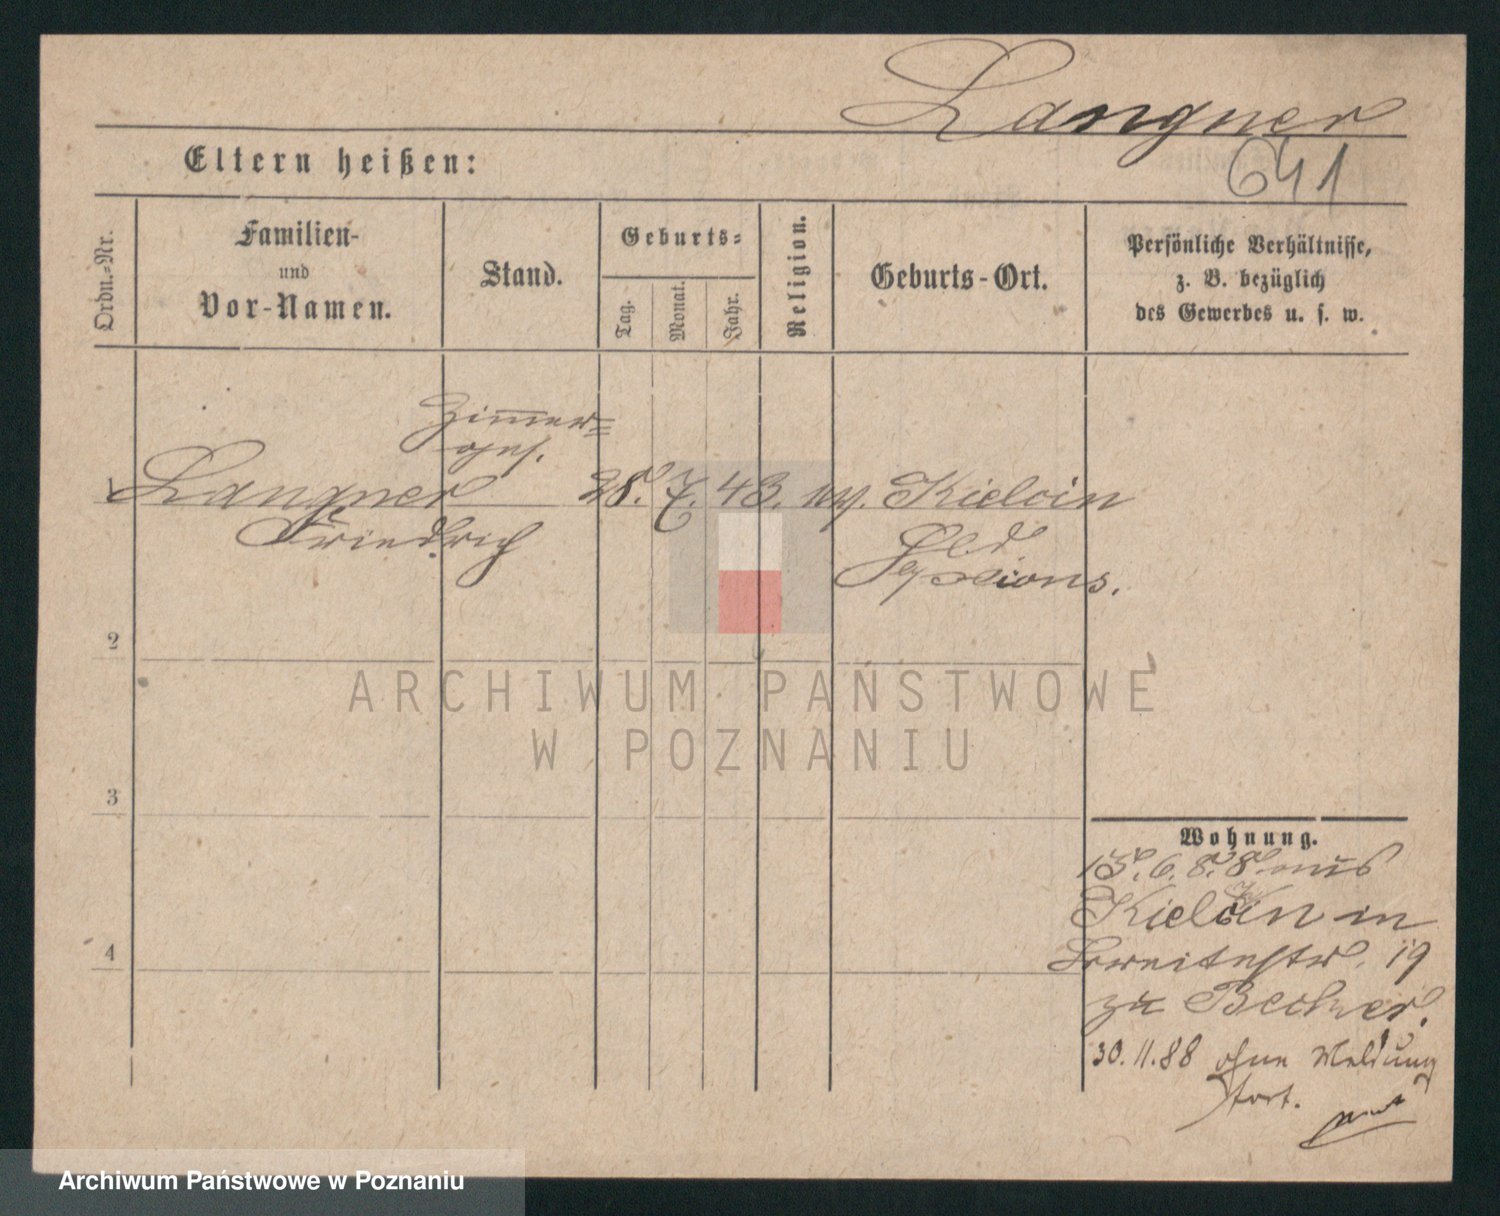 Langner
641
Eltern heißen:
Ordn.-Nr.
Familien-
und
Vor-Namen.
Stand.
Geburts-
Tag.
Monat.
Jahr.
Religion.
Geburts-Ort.
Persönliche Verhältnisse,
z. B. bezüglich
des Gewerbes u. s. w.
Zimmer-
ges.
1 Langner 28. 7. 43. ev. Kieloin
Friedrich
2
ARCHIWUM PAŃSTWOWE
W POZNANIU
3
Wohnung.
15. 6. 88 aus
in
4
Breitestr. 19
zu Becker.
30. 11. 88 ohne Meldung
fort.
Archiwum Państwowe w Poznaniu